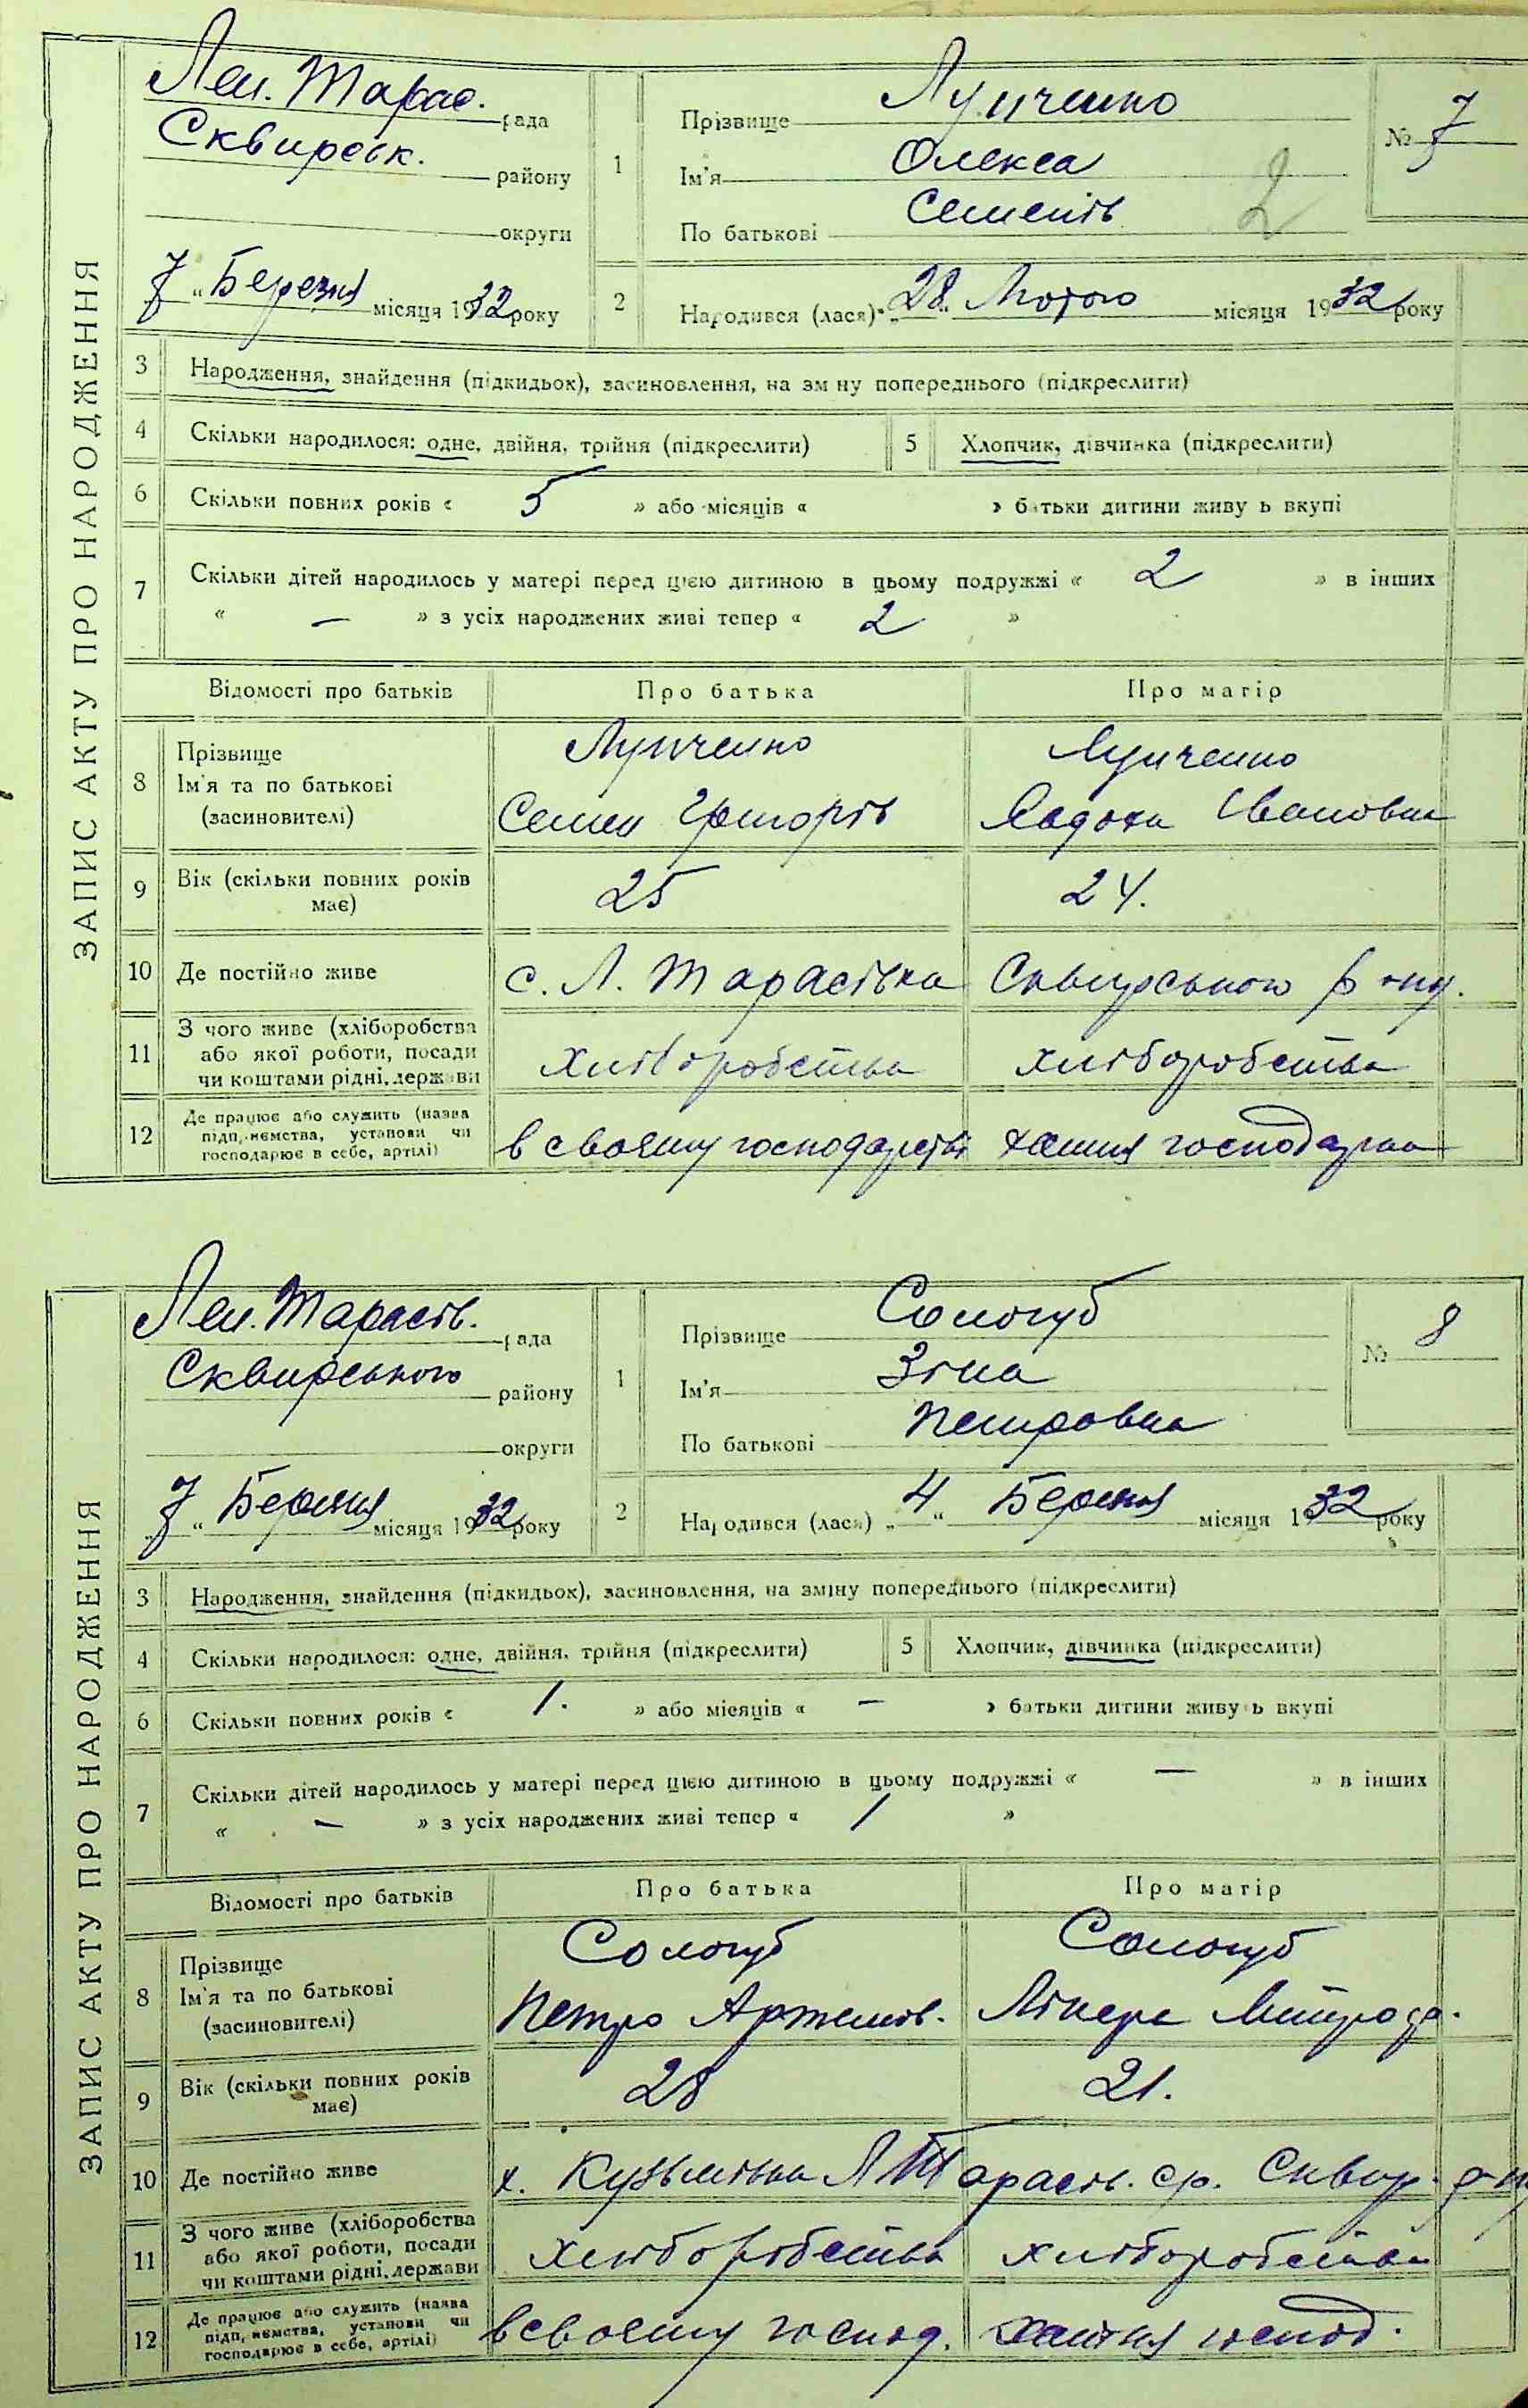 ЗАПИС АКТУ ПРО НАРОДЖЕННЯ
Лен. Тарас. рада
Сквирськ. району
округи
7 " Березня місяця 1932 року
1 Прізвище Лупченко
Ім'я Олекса
По батькові Семенів 2
№ 7
2 Народився (лася) "28" Лютого місяця 1932 року
3 Народження, знайдення (підкидьок), засиновлення, на зміну попереднього (підкреслити)
4 Скільки народилося: одне, двійня, трійня (підкреслити) 5 Хлопчик, дівчинка (підкреслити)
6 Скільки повних років « 5 » або місяців « » батьки дитини живуть вкупі
7 Скільки дітей народилось у матері перед цією дитиною в цьому подружжі « 2 » в інших
« — » з усіх народжених живі тепер « 2 »
Відомості про батьків Про батька Про матір
8 Прізвище Ім'я та по батькові (засиновителі) Лупченко Лупченко
Семен Григорів Явдоха Івановна
9 Вік (скільки повних років має) 25 24.
10 Де постійно живе с. Л. Тарасівка Сквирського р-ну.
11 З чого живе (хліборобства або якої роботи, посади чи коштами рідні, держави хліборобства хліборобства
12 Де працює або служить (назва підприємства, установи чи господарює в себе, артілі) в своєму господарстві хатня господарка
ЗАПИС АКТУ ПРО НАРОДЖЕННЯ
Лен. Тарасів. рада
Сквирського району
округи
„7" Березня місяця 1932 року
1 Прізвище Сологуб
Ім'я Зіна
По батькові Петровна
№ 8
2 Народився (лася) „4" Березня місяця 1932 року
3 Народження, знайдення (підкидьок), засиновлення, на зміну попереднього (підкреслити)
4 Скільки народилося: одне, двійня, трійня (підкреслити) 5 Хлопчик, дівчинка (підкреслити)
6 Скільки повних років « 1. » або місяців « — » батьки дитини живуть вкупі
7 Скільки дітей народилось у матері перед цією дитиною в цьому подружжі « — » в інших
« — » з усіх народжених живі тепер « 1 »
Відомості про батьків Про батька Про матір
8 Прізвище Ім'я та по батькові (засиновителі) Сологуб Сологуб
Петро Артемів. Лікера Митроф.
9 Вік (скільки повних років має) 28 21.
10 Де постійно живе х. Кузьмівка Л Тарасів. ср. Сквир. р-ну
11 З чого живе (хліборобства або якої роботи, посади чи коштами рідні, держави хліборобства хліборобства
12 Де працює або служить (назва підприємства, установи чи господарює в себе, артілі) в своєму господ. хатня господ.